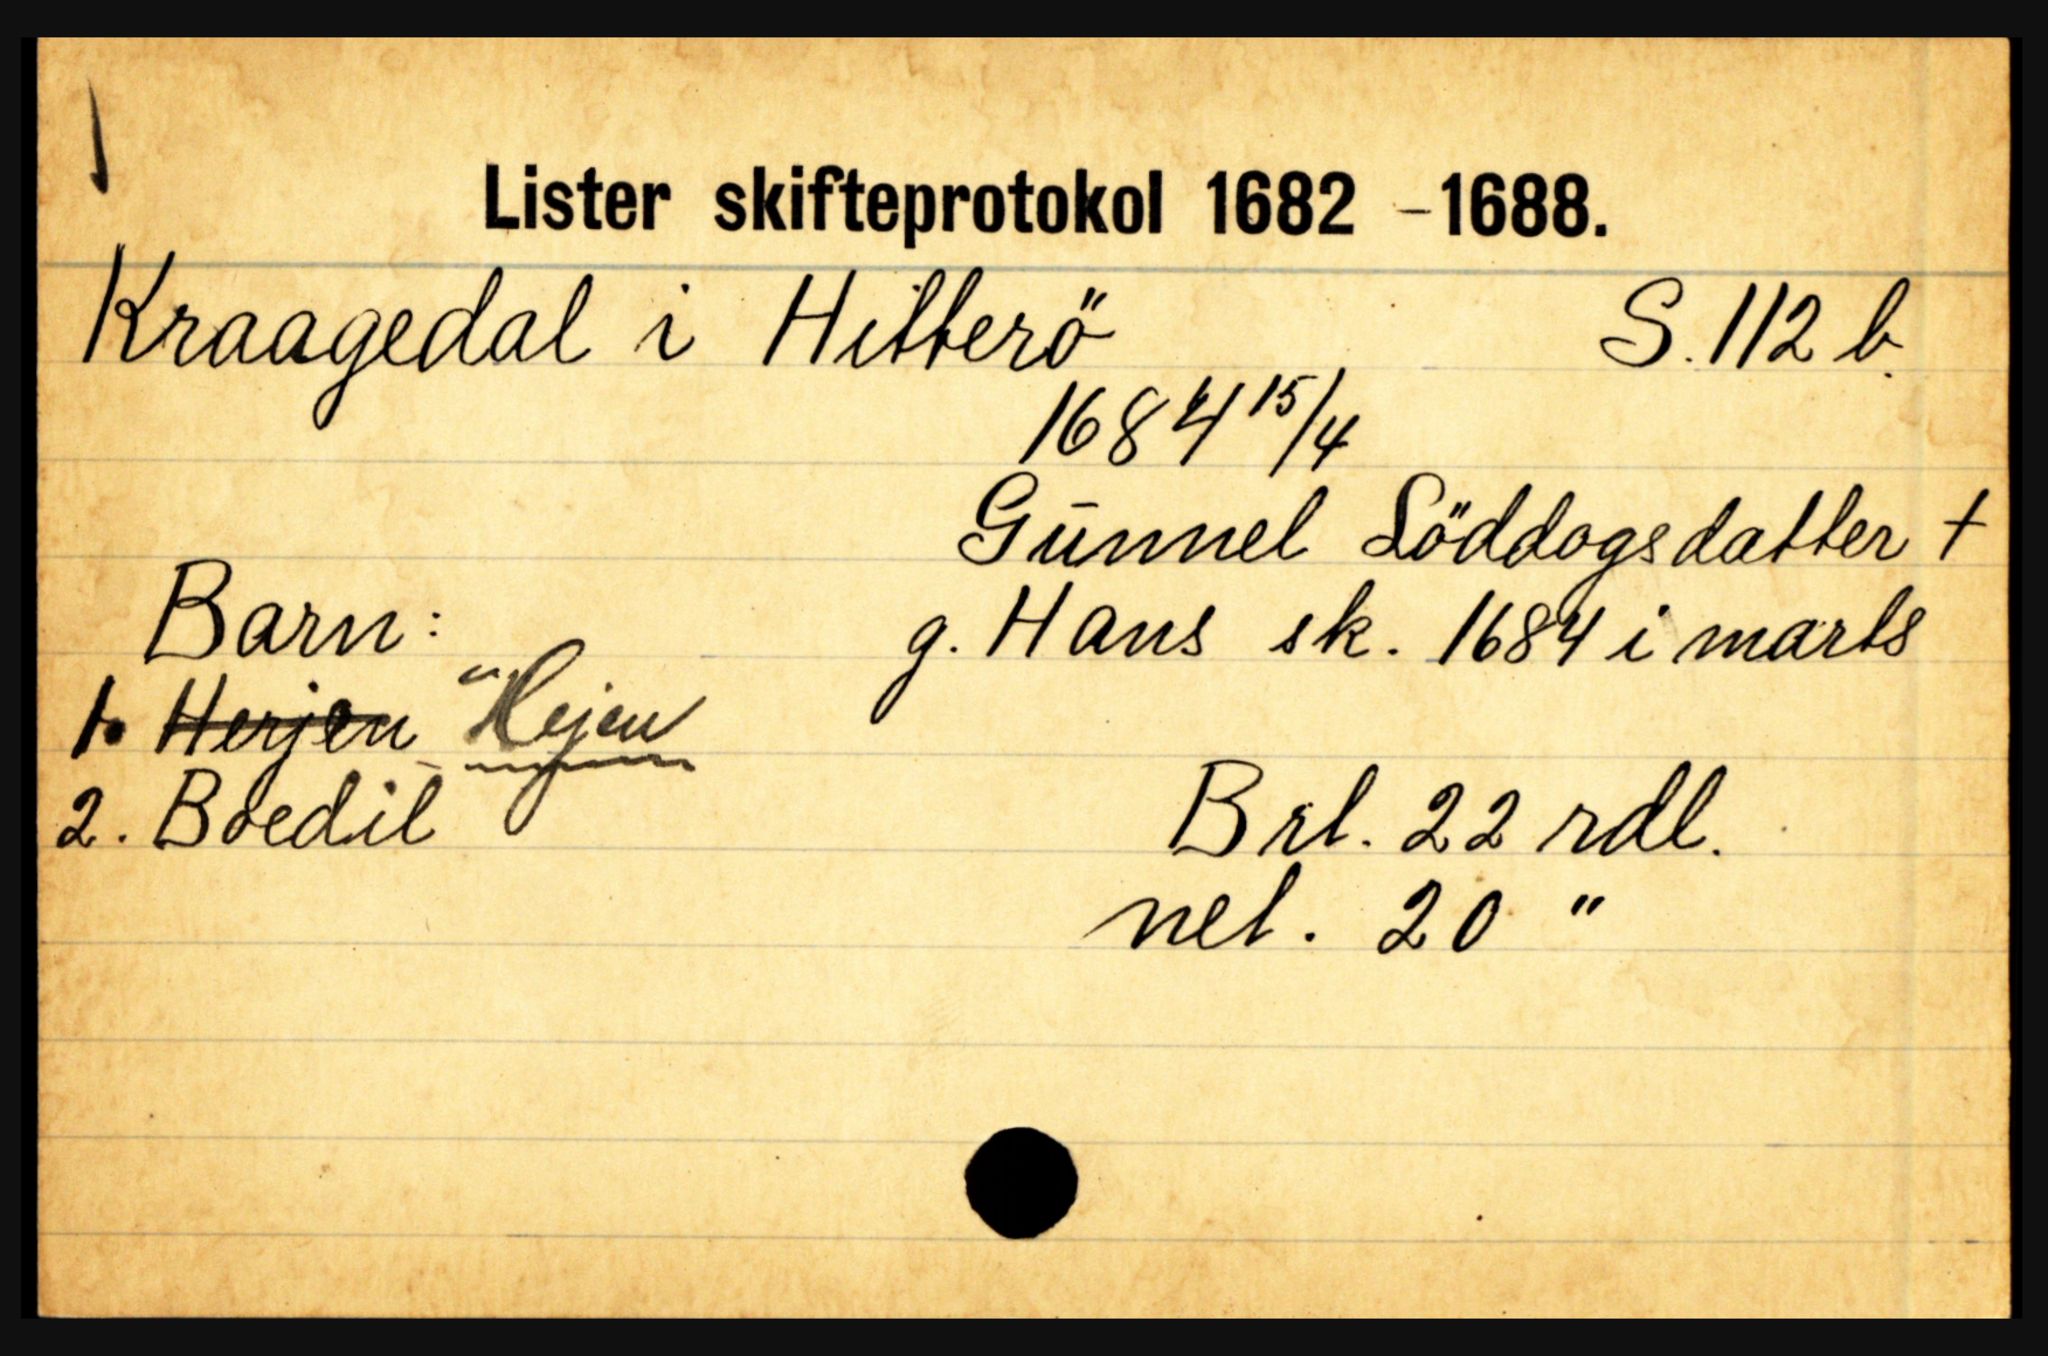 Lister skifteprotokol 1682 - 1688.
Kraagedal i Hitterö S. 112 b.
1684 15/4
Gunnel Löddogsdatter †
Barn: g. Hans sk. 1684 i marts
1. Herjen "Hejen
2. Boedil
Brl. 22 rdl.
nel. 20 "